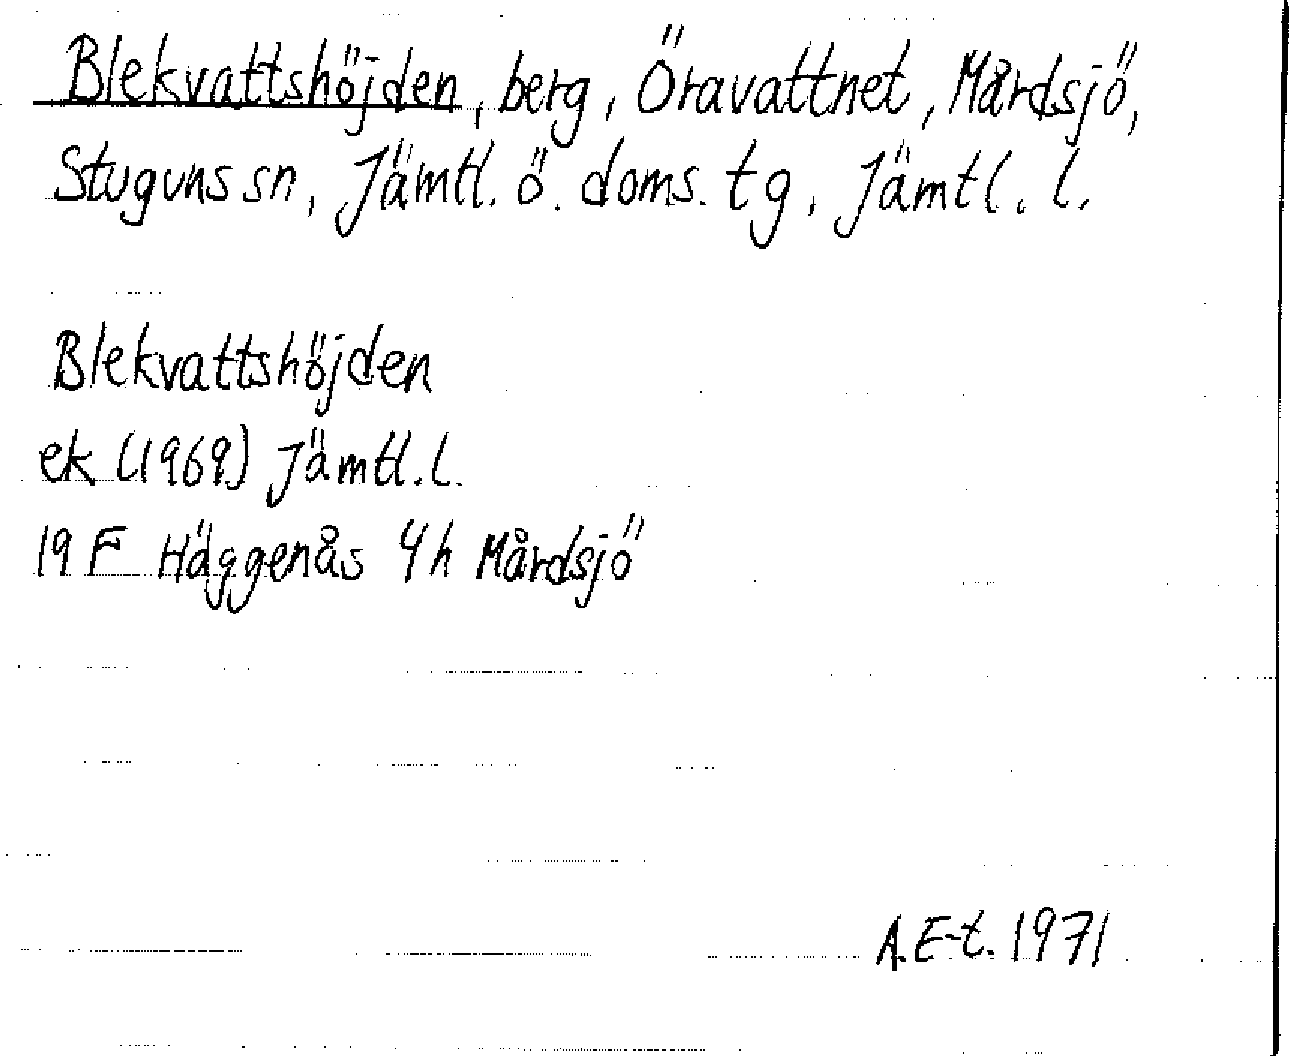 Blekvattshöjden, berg, Öravattnet, Mårdsjö,
Stuguns sn, Jämtl. ö. doms. tg, Jämtl. l.
Blekvattshöjden
ek (1969) Jämtl. l.
19 F Häggenås 4h Mårdsjö
A.E-t. 1971